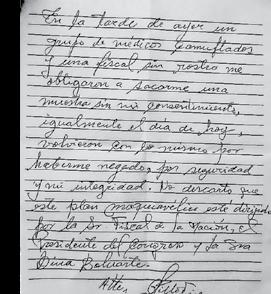 En la tarde de ayer un
grupo de médicos camuflados
y una fiscal sin rostro me
obligaron a sacarme una
muestra sin mi consentimiento,
igualmente el día de hoy,
volvieron con lo mismo por
haberme negado, por seguridad
y mi integridad. No descarto que
este plan maquiavélico esté dirigido
por la Sr Fiscal de la Nación, el
Presidente del Congreso y la Sra
Dina Boluarte.
Atte,